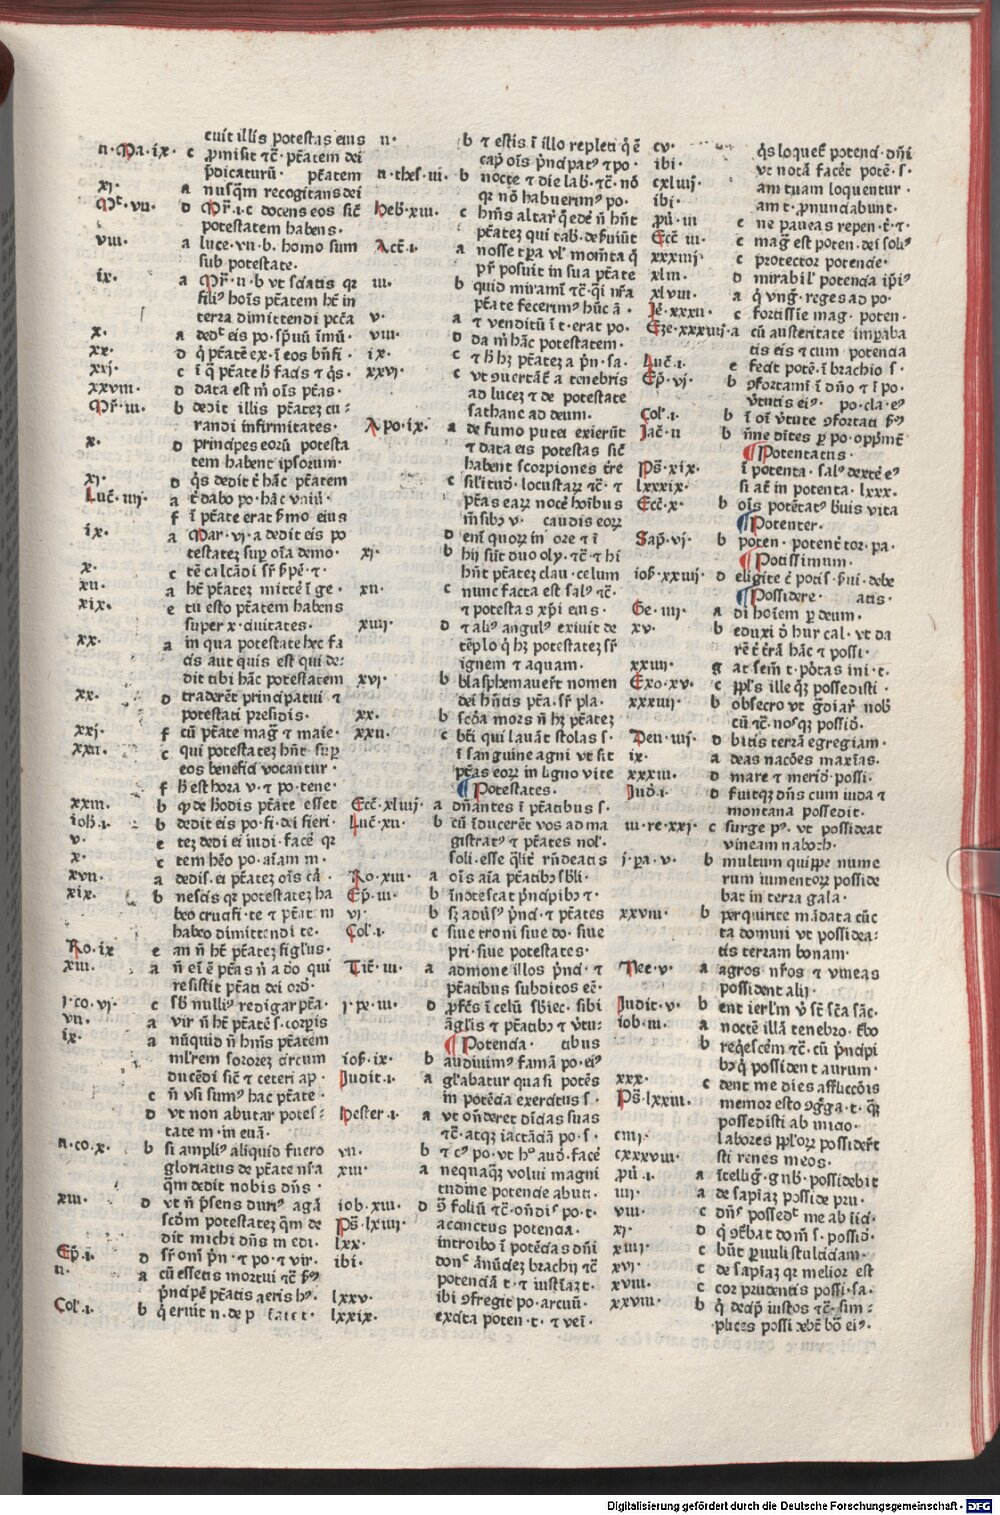 cuit illis potestas eius
n·Ma·ix· c ꝓmisit ⁊c̄· p̄tatem dei
p̄dicaturū· p̄tatem
xj· a nusq̄m recogitans dei
Mc̄·vii· d Mr̄·i·c docens eos sic̄
potestatem habens·
viii· a luce·vii·b· homo sum
sub potestate·
ix· a Mr̄·ii·b vt sciatis qr
fili⁹ hoīs p̄tatem hēt in
terra dimittendi pctā
x· a ded· eis po·sp̄uū īmū·
xx· d q̇ p̄tatē ex·ī eos bn̄fi·
xxj· c ī q̇ p̄tate h̄ facis ⁊ q̇s·
xxviii· d data est m̄ oīs p̄tas·
Mr̄·iii· b dedit illis p̄tatez cu⸗
randi infirmitates·
x· d principes eorū potesta
tem habent ipsorum·
xj· d q̇s dedit t̄ hāc p̄tatem
Luc̄·iiij· a t̄ dabo po·hāc vniū·
f ī p̄tate erat ẜmo eius
ix· a Mar·vj·a dedit eis po
testatez suꝑ oīa demo·
x· c tē calcādi sr̄ ẜpē·⁊·
xii· a hēt p̄tatez mittē ī ge·
xix· e tu esto p̄tatem habens
super x·ciuitates·
xx· a in qua potestate hec fa
cis aut quis est qui de⸗
dit tibi hāc potestatem
xx· d traderēt principatui ⁊
potestati presidis·
xxij· f cū p̄tate maḡ ⁊ maie·
xxii· c qui potestatez hn̄t suꝑ
eos benefici vocantur·
f h̄ est hora v·⁊ po·tene·
xxiii· b ꝙ de h̄odis p̄tate esset
ioh̄·i· b dedit eis po·fi·dei fieri·
v· e tez dedi ei iudi·facē qr
x· c tem hēo po·aīam m·
xvii· a dedis·ei p̄tatez oīs cā·
xix· b nescis qr potestatez ha
beo crucifi·te ⁊ p̄tat m
habeo dimittendi te·
Ro·ix e an n̄ hēt p̄tatez figlus·
xiii· a n̄ eī ē p̄tas n̄ a do qui
resistit p̄tati dei ord̄·
j·co·vj· c sb̄ nulli⁹ redigar p̄ta·
vii· a vir n̄ hēt p̄tatē s·corpis
ix· a nūquid n̄ hm̄s p̄tatem
mlr̄em sororez circum
ducēdi sic̄ ⁊ ceteri ap·
c n̄ vsi sum⁹ hac p̄tate·
d vt non abutar potes⸗
tate m·in euā·
n·co·x· b si ampli⁹ aliquid fuero
gloriatus de p̄tate nr̄a
q̄m dedit nobis dn̄s·
xiii· d vt n̄ p̄sens duri⁹ agā
scd̄m potestatez q̄m de
dit michi dn̄s m edi·
Ep̄·i· d sr̄ om̄ p̄n·⁊ po·⁊ vir·
n· a cū essetis mortui ⁊c̄ ẜ⁹
p̄ncipē p̄tatis aeris h⁹·
Col·i· b q̇ eruit n·de p
n· b ⁊ estis ī illo repleti q̇ ē
cap̄ oīs p̄ncipat⁹ ⁊ po·
n·thes·iii· b nocte ⁊ die lab̄·⁊c̄·nō
qr nō habuerim⁹ po·
Heb̄·xiii· c hm̄s altar̄ q̇ edē n̄ hn̄t
p̄tatez qui tab̄·deẜuiūt
Act̄·i· a nosse tp̄ra vl' mom̄ta q̇
pr̄ posuit in sua p̄tate
iii· b quid miramī ⁊c̄·q̄i nr̄a
p̄tate fecerim⁹ hūc ā·
v· a ⁊ venditū ī t·erat po·
viii· d da m̄ hāc potestatem·
ix· c ⁊ h̄ hz p̄tatez a p̄n·sa·
xxvj· c vt ↄuertāt̄ a tenebris
ad lucez ⁊ de potestate
sathane ad deum·
Apo·ix· a de fumo putei exierūt
⁊ data eis potestas sic̄
habent scorpiones t̄re
c sil'itud̄·locustaꝝ ⁊c̄·⁊
p̄tas eaꝝ nocē hoīnibus
m̄sibꝫ v· caudis eoꝝ
d eni quoꝝ in ore ⁊ ī
xj· b hij sūt duo oly·⁊c̄·⁊ hi
hn̄t p̄tatez clau·celum
xii· c nunc facta est sal⁹ ⁊c̄·
⁊ potestas xp̄i eius·
xiiij· d ⁊ ali⁹ angul⁹ exiuit de
tēplo q̇ hz p̄tatez sr̄
ignem ⁊ aquam·
xvj· b blasphemauer̄t nomen
dei hn̄tis p̄ta·sr̄ pla·
xx· b scd̄a mors n̄ hz p̄tatez
xxii· c bt̄i qui lauāt stolas s·
ī sanguine agni vt sit
p̄tas eoꝝ in ligno vite
¶ Potestates·
Ecc̄·xliij· a dn̄antes ī p̄tatibus s·
Luc̄·xii· b cū īducerēt vos ad ma
gistrat⁹ ⁊ p̄tates nol'·
soli·esse q̄litē rn̄deatis
Ro·xiii· a oīs aīa p̄tatibꝫ sb̄li·
Ep̄·iii· b īnotescat p̄ncipibꝫ ⁊·
vj· b sz adūs⁹ p̄nci·⁊ p̄tates
Col·i· c siue troni siue do·siue
pri·siue potestates·
Tit̄·iii· a admone illos p̄nci·⁊
p̄tatibus subditos eē·
j·pe·iii· d ꝓfc̄s ī celū sb̄iec·sibi
āglīs ⁊ p̄tatibꝫ ⁊ v̄tu⸗
¶ Potencia· tibus
iob·ix· b audiuim⁹ famā po·ei⁹
Judit·i· a gl'abatur quasi potēs
in potēcia exercitus s·
Hester·i· a vt on̄deret diūcias suas
⁊c̄·atqz iactāciā po·s·
vii· b ⁊ c⁹ po·vt hº aud̄·facē
xiii· a nequaq̄z volui magni
tudine potencie abuti·
iob·xiii· d ↄ̄ foliū ⁊c̄·on̄dis po·t·
Ps̄·lxiij· a accinctus potencia·
lxx· introibo ī potēcias dn̄i
ibi· donᶜ ān̄ūciez brachiū ⁊c̄
potenciā t·⁊ iusticiaz t·
lxxv· ibi ↄfregit po·arcuū·
lxxix· excita poten·t·⁊ vei·
cv· q̇s loquet̄ potenci·dn̄i
ibi· vt notā facet̄ potē·s·
cxliiij· am tuam loquentur·
ibi· am t·ꝓnunciabunt·
Pū·iii e ne paueas repen·t̄·⁊·
Ecc̄·iii· c maḡ est poten·dei soli⁹
xxxiiij c protector potencie·
xliii· d mirabil' potencia ip̄i⁹
xlviii· a q̇ vnḡ·reges ad po·
Je·xxxii· c fortissime mag·poten·
Eze·xxxiiij·a cū austeritate imꝑaba
tis eis ⁊ cum potencia
Luc̄·i· e fecit potē·ī brachio s·
Ep̄·vj· b ↄfortamī ī dn̄o ⁊ ī po·
v̄tutis ei⁹· po·cla·e⁹
Col·i· b ī oī v̄tute ↄfortati ẜ⁹
Jac̄·ii b n̄ne dītes ꝑ po·opp̄mt̄
¶ Potentatus·
Ps̄·xix· ī potenta·sal⁹ dexte e⁹
lxxxix· si at̄ in potenta·lxxx·
Ecc̄·x· b oīs potētat⁹ b̄uis vita
¶ Potenter·
Sap̄·vj· b poten·potent̄ tor·pa·
¶ Potissimum·
iob̄·xxiij· d eligite c̄ potis·ẜui·debe
¶ Possidere· atis·
Ge·iiij· a di hoīem ꝑ deum·
xv· b eduxi ō hur cal·vt da
rē t̄ t̄rā hāc ⁊ possi·
xxiiij· g at sem̄ t·pōtas ini·t·
Exo·xv· c ppl's ille q̄z possedisti·
xxxiiij· b obsecro vt ḡdiar̄ nob̄
cū ⁊c̄·nosqz possid̄·
Den·iiij· d bitis terrā egregiam·
ix· a deas nacōes maxīas·
xxxiii· d mare ⁊ merid̄·possi·
Jud̄·i· d fuitqz dn̄s cum iuda ⁊
montana possedit·
iii·re·xxj· c surge p⁹·vt possideat
vineam naboth·
j·pa·v· b multum quippe nume
rum iumentoꝝ posside
bat in terra gala·
xxviii· b perquirite mādata cūc
ta domini vt possidea⸗
tis terram bonam·
Nee·v· a agros nr̄os ⁊ vineas
possident alij·
Judit·v· b ent ierl'm v̄ sē̄t scā sāc̄·
iob·iii· a noctē illā tenebro·t̄bo
b reqēscēm ⁊c̄·cū p̄ncipi
bꝫ q̇ possident aurum·
xxx· c dent me dies afflictiōis
Ps̄·lxxiii· memor esto ↄḡga·t·q̄z
possedisti ab inicio·
ciiij· labores pplo'ꝝ possider̄t
cxxxviii· sti renes meos·
Pū·i· a ītelbḡ·gub̄·possidebit
iiij· a de sap̄iaz posside pru·
viii· c dn̄s possedᶜ me ab iīci·
xj· d q̇ ↄt̄bat dom̄ s·possid̄·
xiiij· c būt ꝑuuli stulticiam·
xvj· c de sap̄iaz qr melior est
xviii· c cor prudentis possi·sa·
xxviii· b q̇ decip̄ iustos ⁊c̄·sim⸗
plices possidebt̄ bō ei⁹·
Digitalisierung gefördert durch die Deutsche Forschungsgemeinschaft - DFG